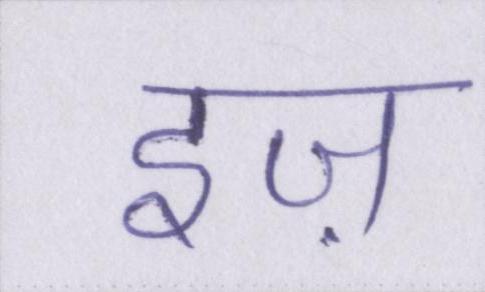 इज़